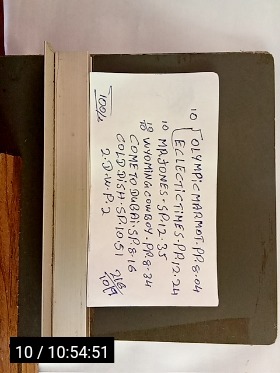 10 OLYMPIC MARMOT. PR. 8.04
ECLECTIC TIMES. PR. 12.24
10 MR JONES. SP. 12.35
WYOMING COWBOY. PR. 8.34
COME TO DUBAI. SP. 8.16
COLD DISH. SP. 10.51
2. D. W. P. 2
10 / 10:54:51